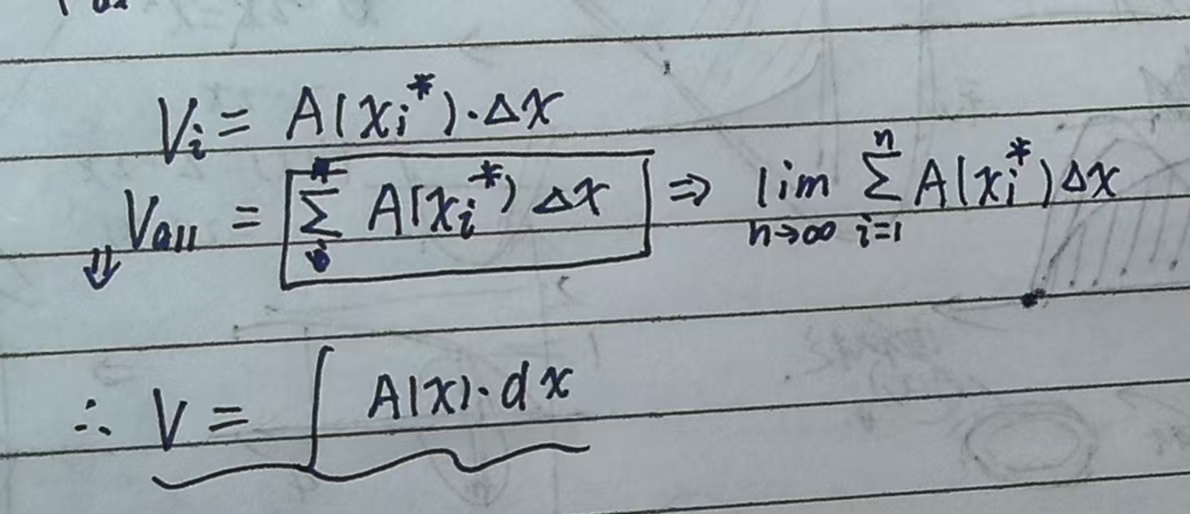 Vᵢ = A(xᵢ*)·Δx
Vₐₗₗ = Σ A(xᵢ*) Δx ⇒ lim n→∞ Σ i=1 n A(xᵢ*)Δx
⇓
∴ V = ∫ A(x)·dx